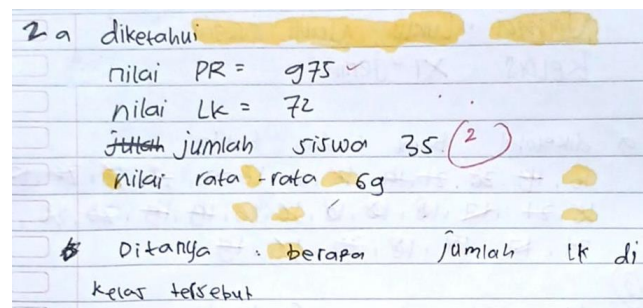 2 a diketahui
nilai PR = 975
nilai LK = 72
jumlah siswa 35 2
nilai rata-rata 69
b Ditanya : berapa jumlah lk di
kelas tersebut